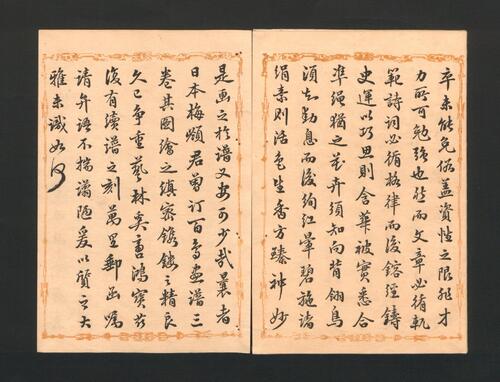 卒未能免俗蓋資性之限非才
力所可勉強也然而文章必循軌
範詩詞必循格律而後鎔經鑄
史運以巧思則含華被實悉合
準繩猶之花卉須知向背翎鳥
須知動息而後絢紅暈碧施諸
絹素則活色生香方臻神妙
是畫之於譜又安可少哉曩者
日本梅嶺君曾訂百鳥畫譜三
卷其圖繪之縝密鐫鏤之精良
久已爭重藝林奚啻鴻寶茲
復有續譜之刻萬里郵函囑
請弁語不揣譾陋爰以質之大
雅未識如何